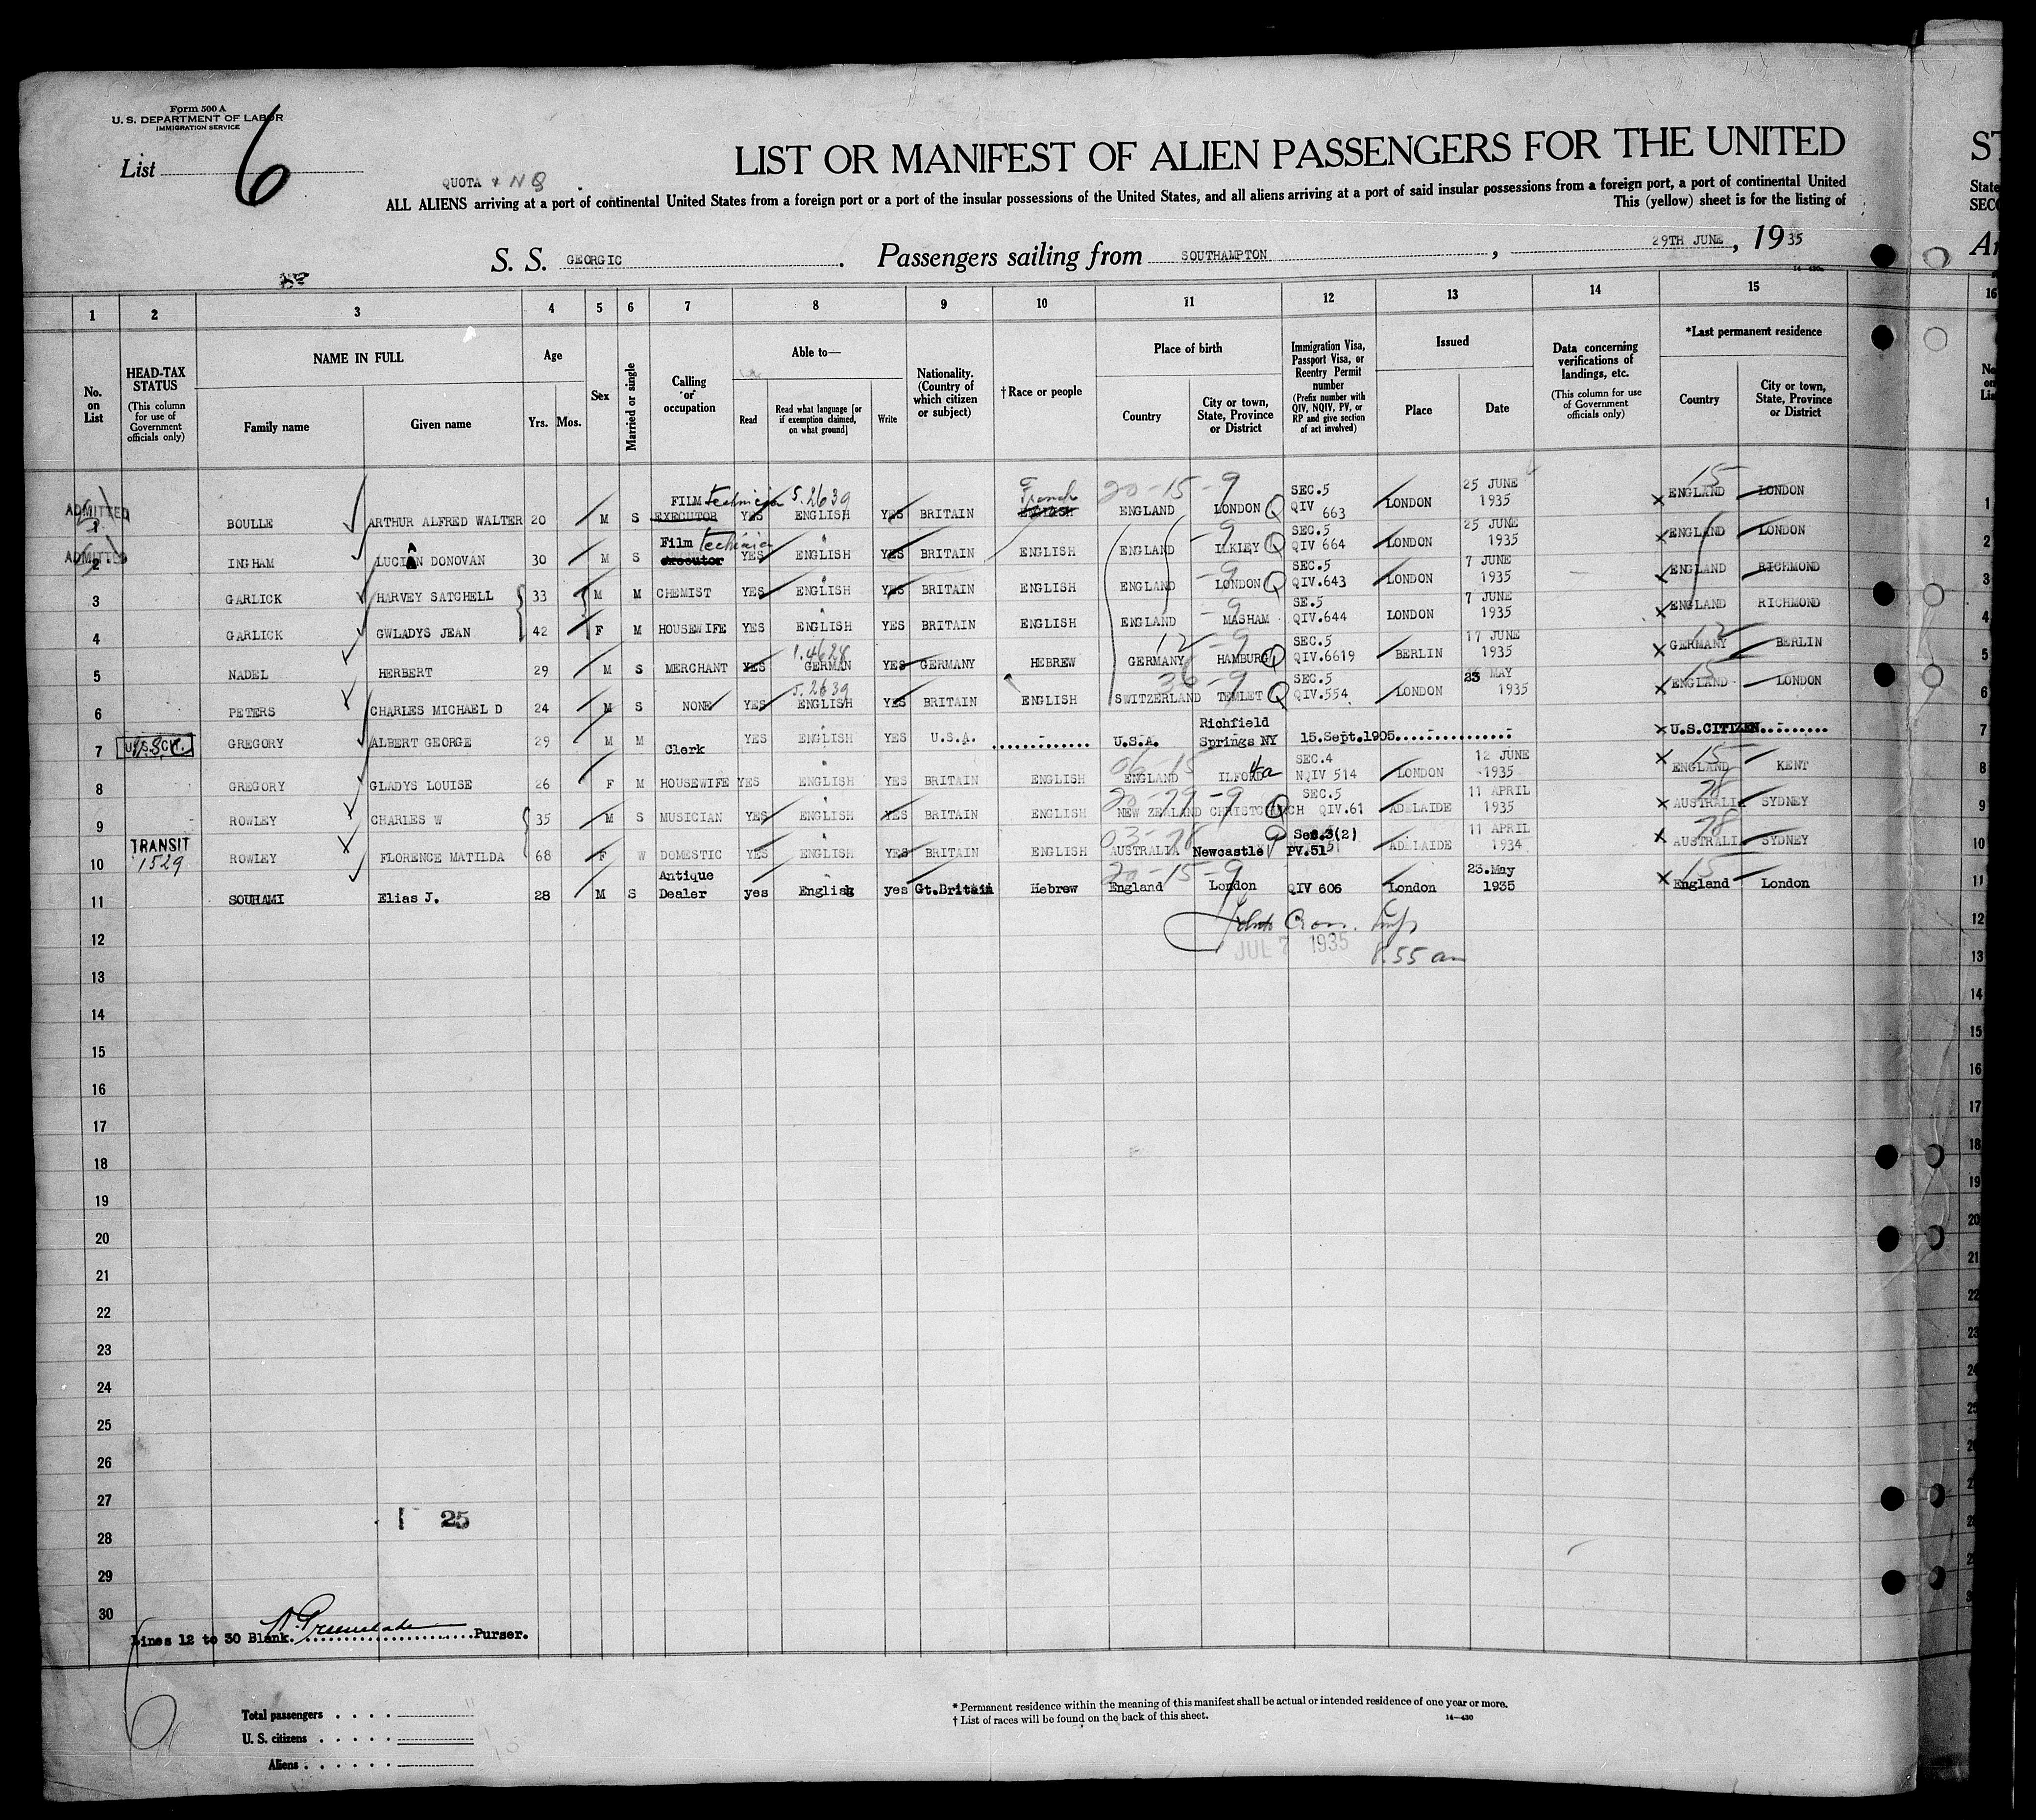 Form 500 A
U. S. DEPARTMENT OF LABOR
IMMIGRATION SERVICE
List 6
QUOTA & NQ
LIST OR MANIFEST OF ALIEN PASSENGERS FOR THE UNITED ST
ALL ALIENS arriving at a port of continental United States from a foreign port or a port of the insular possessions of the United States, and all aliens arriving at a port of said insular possessions from a foreign port, a port of continental United State
This (yellow) sheet is for the listing of SEC
S. S. GEORGIC. Passengers sailing from SOUTHAMPTON, 29TH JUNE, 1935
1 2 3 4 5 6 7 8 9 10 11 12 13 14 15 16
No. on List
HEAD-TAX STATUS (This column for use of Government officials only)
NAME IN FULL
Family name
Given name
Age
Yrs. Mos.
Sex
Married or single
Calling or occupation
Able to—
Read
Read what language [or if exemption claimed, on what ground]
Write
Nationality. (Country of which citizen or subject)
† Race or people
Place of birth
Country
City or town, State, Province or District
Immigration Visa, Passport Visa, or Reentry Permit number (Prefix number with QIV, NQIV, PV, or RP and give section of act involved)
Issued
Place
Date
Data concerning verifications of landings, etc. (This column for use of Government officials only)
*Last permanent residence
Country
City or town, State, Province or District
ADMITTED BOULLE ARTHUR ALFRED WALTER 20 M S FILM technician EXECUTOR YES 5.2639 ENGLISH YES BRITAIN French 20-15-9 ENGLAND LONDON Q SEC.5 QIV 663 LONDON 25 JUNE 1935 15 ENGLAND LONDON 1
ADMITTED 2 INGHAM LUCIAN DONOVAN 30 M S Film technician executor YES ENGLISH YES BRITAIN ENGLISH ENGLAND -9 ILKLEY Q SEC.5 QIV 664 LONDON 25 JUNE 1935 ENGLAND LONDON 2
3 GARLICK HARVEY SATCHELL 33 M M CHEMIST YES ENGLISH YES BRITAIN ENGLISH ENGLAND -9 LONDON Q SEC.5 QIV.643 LONDON 7 JUNE 1935 ENGLAND RICHMOND 3
4 GARLICK GWLADYS JEAN 42 F M HOUSEWIFE YES ENGLISH YES BRITAIN ENGLISH ENGLAND -9 MASHAM SE.5 QIV.644 LONDON 7 JUNE 1935 ENGLAND RICHMOND 4
5 NADEL HERBERT 29 M S MERCHANT YES 1.4628 GERMAN YES GERMANY HEBREW 12-9 GERMANY HAMBURG Q SEC.5 QIV.6619 BERLIN 17 JUNE 1935 12 GERMANY BERLIN 5
6 PETERS CHARLES MICHAEL D 24 M S NONE YES 5.2639 ENGLISH YES BRITAIN ENGLISH 36-9 SWITZERLAND TEMLET Q SEC.5 QIV.554 LONDON 23 MAY 1935 15 ENGLAND LONDON 6
7 U.S.CIT. GREGORY ALBERT GEORGE 29 M M Clerk YES ENGLISH YES U.S.A. U.S.A. Richfield Springs NY 15.Sept.1905 U.S.CITIZEN 7
8 GREGORY GLADYS LOUISE 26 F M HOUSEWIFE YES ENGLISH YES BRITAIN ENGLISH 06-15 ENGLAND ILFORD 4a SEC.4 NQIV 514 LONDON 12 JUNE 1935 15 ENGLAND KENT 8
9 ROWLEY CHARLES W 35 M S MUSICIAN YES ENGLISH YES BRITAIN ENGLISH 20-79-9 NEW ZEALAND CHRISTCHURCH Q SEC.5 QIV.61 ADELAIDE 11 APRIL 1935 78 AUSTRALI SYDNEY 9
10 TRANSIT 1529 ROWLEY FLORENCE MATILDA 68 F W DOMESTIC YES ENGLISH YES BRITAIN ENGLISH 03-78 AUSTRALIA Newcastle Sec.3(2) PV.51 ADELAIDE 11 APRIL 1934 78 AUSTRALI SYDNEY 10
11 SOUHAMI Elias J. 28 M S Antique Dealer yes English yes Gt.Britain Hebrew 20-15-9 England London QIV 606 London 23.May 1935 15 England London 11
12 12
JUL 7 1935 8.55 am
13 13
14 14
15 15
16 16
17 17
18 18
19 19
20 20
21 21
22 22
23 23
24
25
26
27
1 25
28
29
30
Lines 12 to 30 Blank. Purser.
Total passengers
U. S. citizens
Aliens
* Permanent residence within the meaning of this manifest shall be actual or intended residence of one year or more.
† List of races will be found on the back of this sheet.
14—430